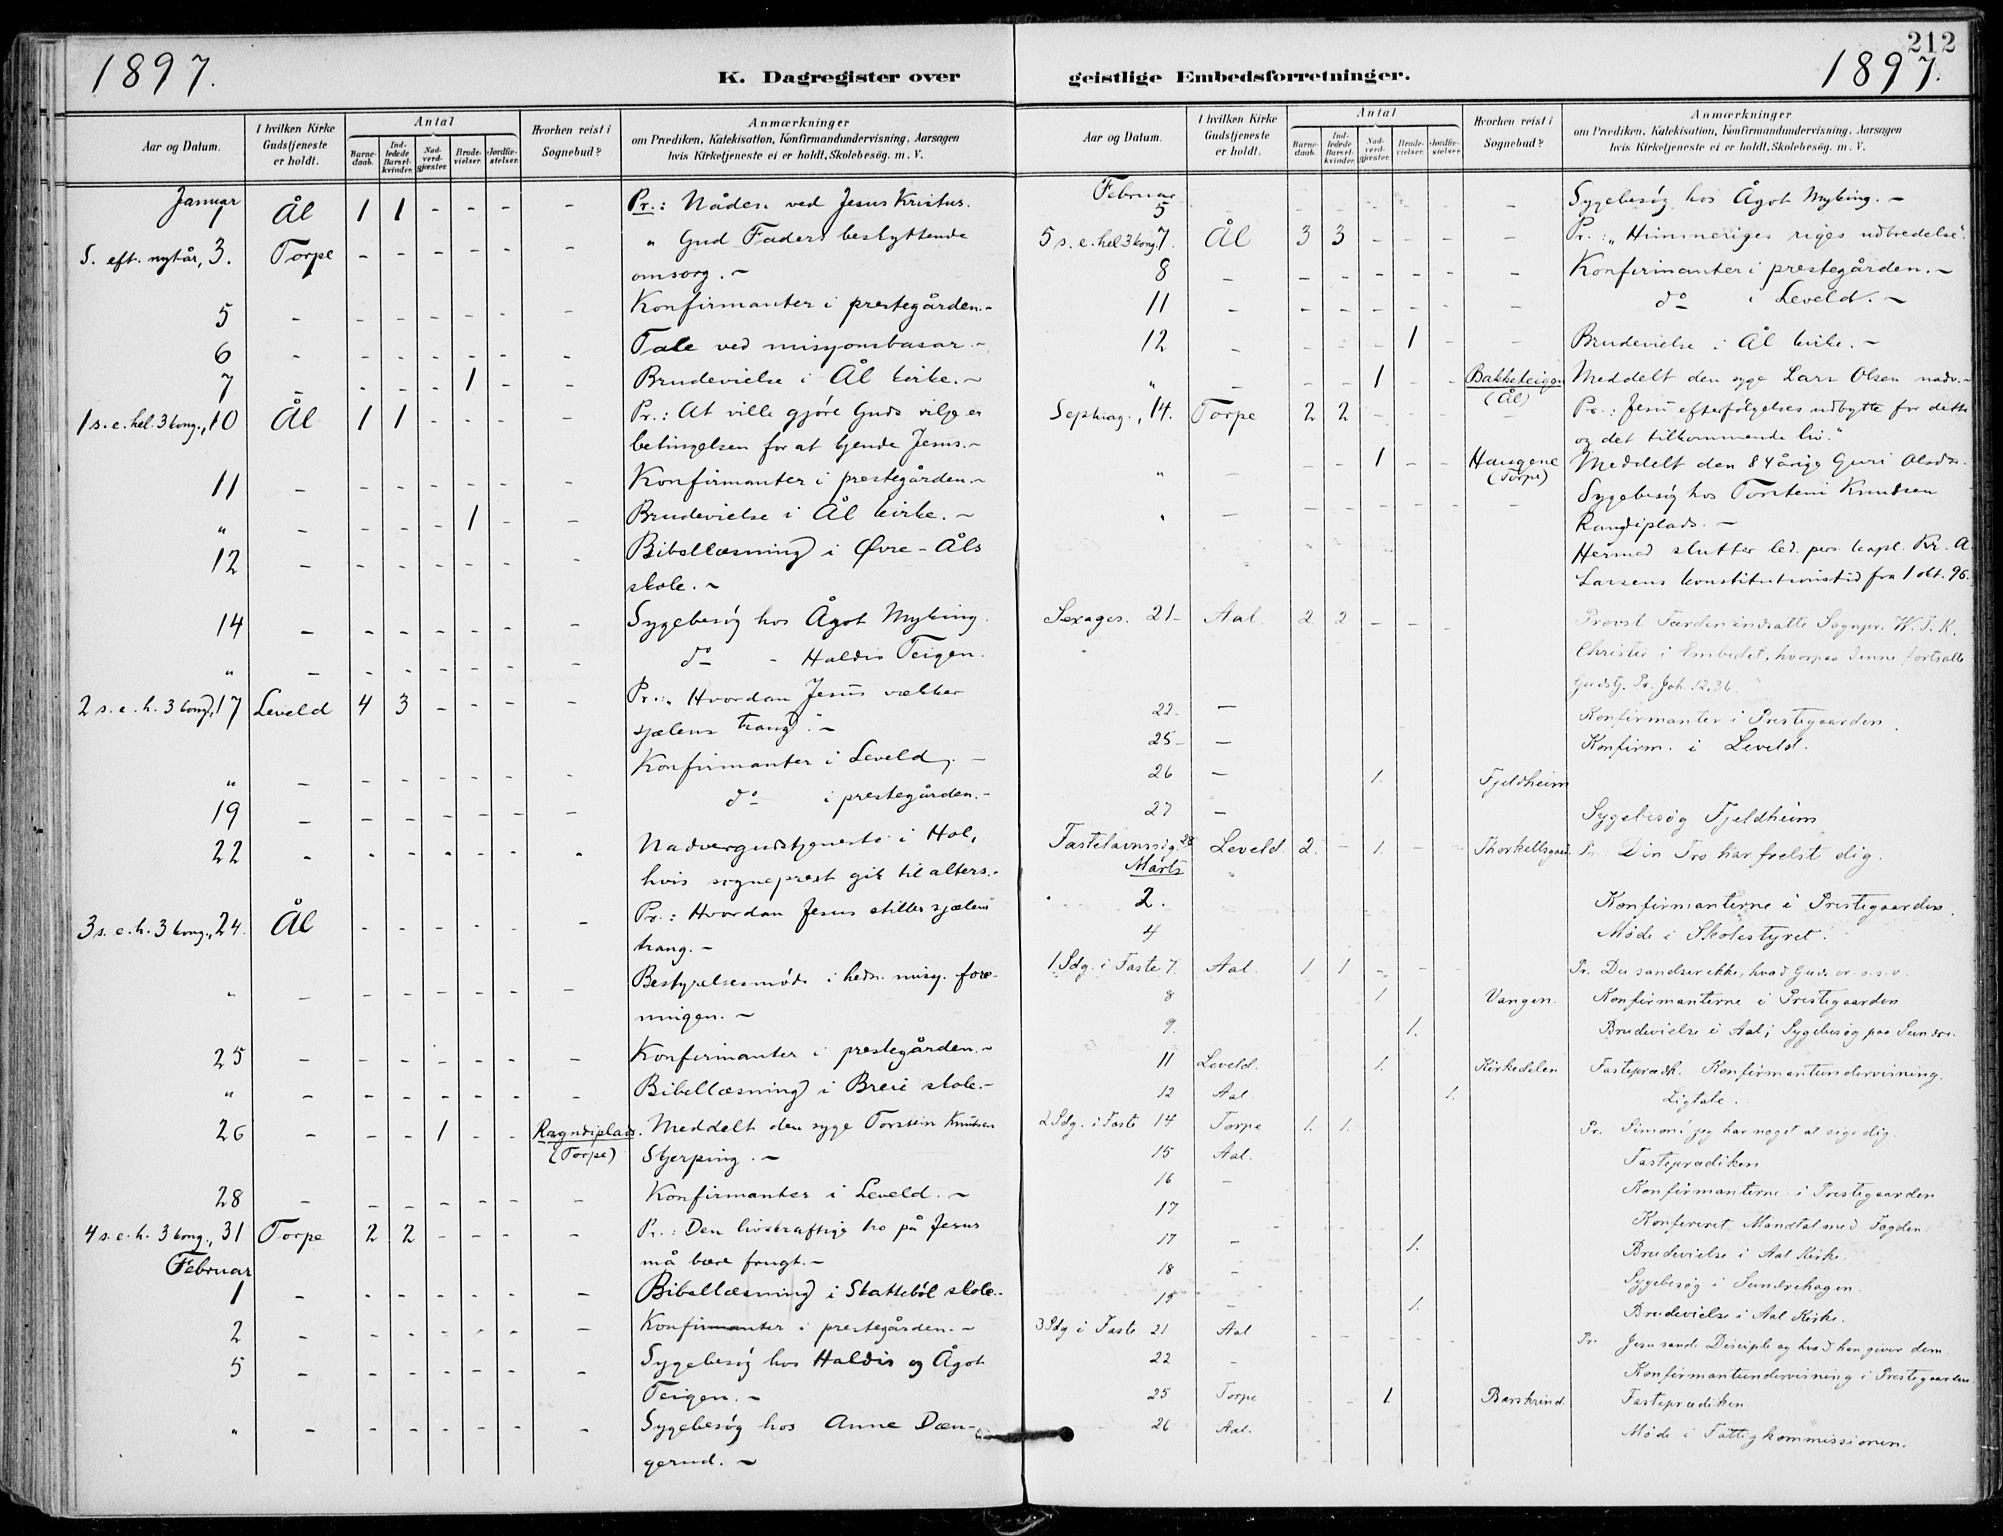 1897.
K. Dagregister over
Aar og Datum.
I hvilken Kirke Gudstjeneste er holdt.
Antal
Barnedaab.
Indledede Barselkvinder.
Nadverdgjæster.
Brudevielser.
Jordfæstelser.
Hvorhen reist i Sognebud?
Anmærkninger
om Prædiken, Katekisation, Konfirmandundervisning, Aarsagen
hvis Kirketjeneste ei er holdt, Skolebesøg. m. V.
Januar
1 Ål 1 1 - - - - Pr.: Nåden ved Jesus Kristus.
S. eft. nytår, 3. Torpe - - - - - - " Gud Faders beskyttende
omsorg. -
5 - - - - - - - Konfirmanter i prestegården. -
6 - - - - - - - Tale ved misjonsbasar. -
7 - - - - 1 - - Brudevielse i Ål kirke. -
1 s. e. hel. 3 kong., 10 Ål 1 1 - - - - Pr.: At ville gjøre Guds vilje er
betingelsen for at kjende Jesus. -
11 - - - - - - - Konfirmanter i prestegården. -
" - - - - 1 - - Brudevielse i Ål kirke. -
12 - - - - - - - Bibellæsning i Øvre-Åls
skole. -
14 - - - - - - - Sygebesøg hos Ågot Myking.
" - - - - - - - do - Haldis Teigen.
2 s. e. h. 3 kong., 17 Leveld 4 3 - - - - Pr.: "Hvordan Jesus vækker
sjælens trang". -
" - - - - - - - Konfirmanter i Leveld. -
19 - - - - - - - do i prestegården. -
22 - - - - - - - Nadvergudstjeneste i Hol,
hvis sogneprest gik til alters. -
3 s. e. h. 3 kong., 24. Ål - - - - - - Pr.: Hvordan Jesus stiller sjælens
trang. -
" - - - - - - - Bestyrelsesmøde i hedn. misj. fore-
ningen. -
25 - - - - - - - Konfirmanter i prestegården. -
" - - - - - - - Bibellæsning i Breie skole. -
26 - - - 1 - - Ragndiplads. (Torpe) Meddelt den syge Torstein Knutsen
Skjerping. -
28 - - - - - - - Konfirmanter i Leveld. -
4 s. e. h. 3 kong., 31 Torpe 2 2 - - - - Pr.: Den livskraftige tro på Jesus
må bære frugt. -
Februar
1 - - - - - - - Bibellæsning i Skattebøl skole. -
2 - - - - - - - Konfirmanter i prestegården. -
5 - - - - - - - Sygebesøg hos Haldis og Ågot
Teigen. -
" - - - - - - - Sygebesøg hos Anne Dæn-
gerud. -
212
geistlige Embedsforretninger.
1897.
Aar og Datum.
I hvilken Kirke Gudstjeneste er holdt.
Antal
Barnedaab.
Indledede Barselkvinder.
Nadverdgjæster.
Brudevielser.
Jordfæstelser.
Hvorhen reist i Sognebud?
Anmærkninger
om Prædiken, Katekisation, Konfirmandundervisning, Aarsagen
hvis Kirketjeneste ei er holdt, Skolebesøg. m. V.
Februar
5 - Sygebesøg hos Ågot Myking. -
5 s. e. hel. 3 kong. 7. Ål 3 3 - - - - Pr.: "Himmeriges riges udbredelse".
8 - - - - - - - Konfirmanter i prestegården. -
11 - - - - - - - do i Leveld. -
12 - - - - 1 - - Brudevielse i Ål kirke. -
" - - - 1 - - Bakketeigen (Ål) Meddelt den syge Lars Olsen nadv. -
Septuag., 14. Torpe 2 2 - - - - Pr.: "Jesu efterfølgelses udbytte for dette
og det tilkommende liv."
" - - - 1 - - Haugene (Torpe) Meddelt den 84 årige Guri Olsdr. -
" - - - - - - - Sygebesøg hos Torstein Knudsen
Ragndiplads. -
Hermed slutter led. pers. kapl. Kr. A.
Larsens konstitutionstid fra 1 okt. 96.
Sexages. 21 - Aal. 2 2 - - - Provst Færden indsatte Sognpr. W. F. K.
Christie i Embedet, hvorpaa denne fortsatte
Gudstj. Pr. Joh. 12,36.
22. - Konfirmanter i Prestegaarden.
25 - - Konfirm. i Leveld.
26 - 1. Fjeldheim
27 - Sygebesøg Fjeldheim
Fastelavnssøg. 28 Leveld. 2. - 1. - Thorkellsgaard. Pr. Din Tro har frelst dig.
Marts
2. Konfirmanterne i Prestegaarden.
4 Møde i Skolestyret.
1 Sdg. i Faste 7. Aal. 1 1 - - - Pr. Du sandser ikke, hvad Guds er o. s. v.
8 1 Vangen. Konfirmanterne i Prestegaarden
9. 1. Brudevielse i Aal; Sygebesøg paa Sundre.
11 Leveld. 1. Kirkedelen Fasteprædk. Konfirmantundervisning.
12 Aal. 1. Ligtale.
2 Sdg. i Faste 14 Torpe 1. 1. Pr. Simon! jeg har noget at sige dig.
15 Aal. Fasteprædiken
16 - Konfirmanterne i Prestegaarden
17 Konfereret Mandtal med Fogden.
17 - 1. Brudevielse i Aal Kirke.
18 - Sygebesøg i Sundrehagen.
19 - 1. Brudevielse i Aal Kirke.
3 Sdg i Faste 21 Aal - - - - - Pr. Jesu sande Disciple og hvad han giver dem.
22 - Konfirmantundervisning i Prestegaarden.
25 Torpe - - 1 Barskrind. Fasteprædiken.
26 Aal. Møde i Fattigkommissionen.